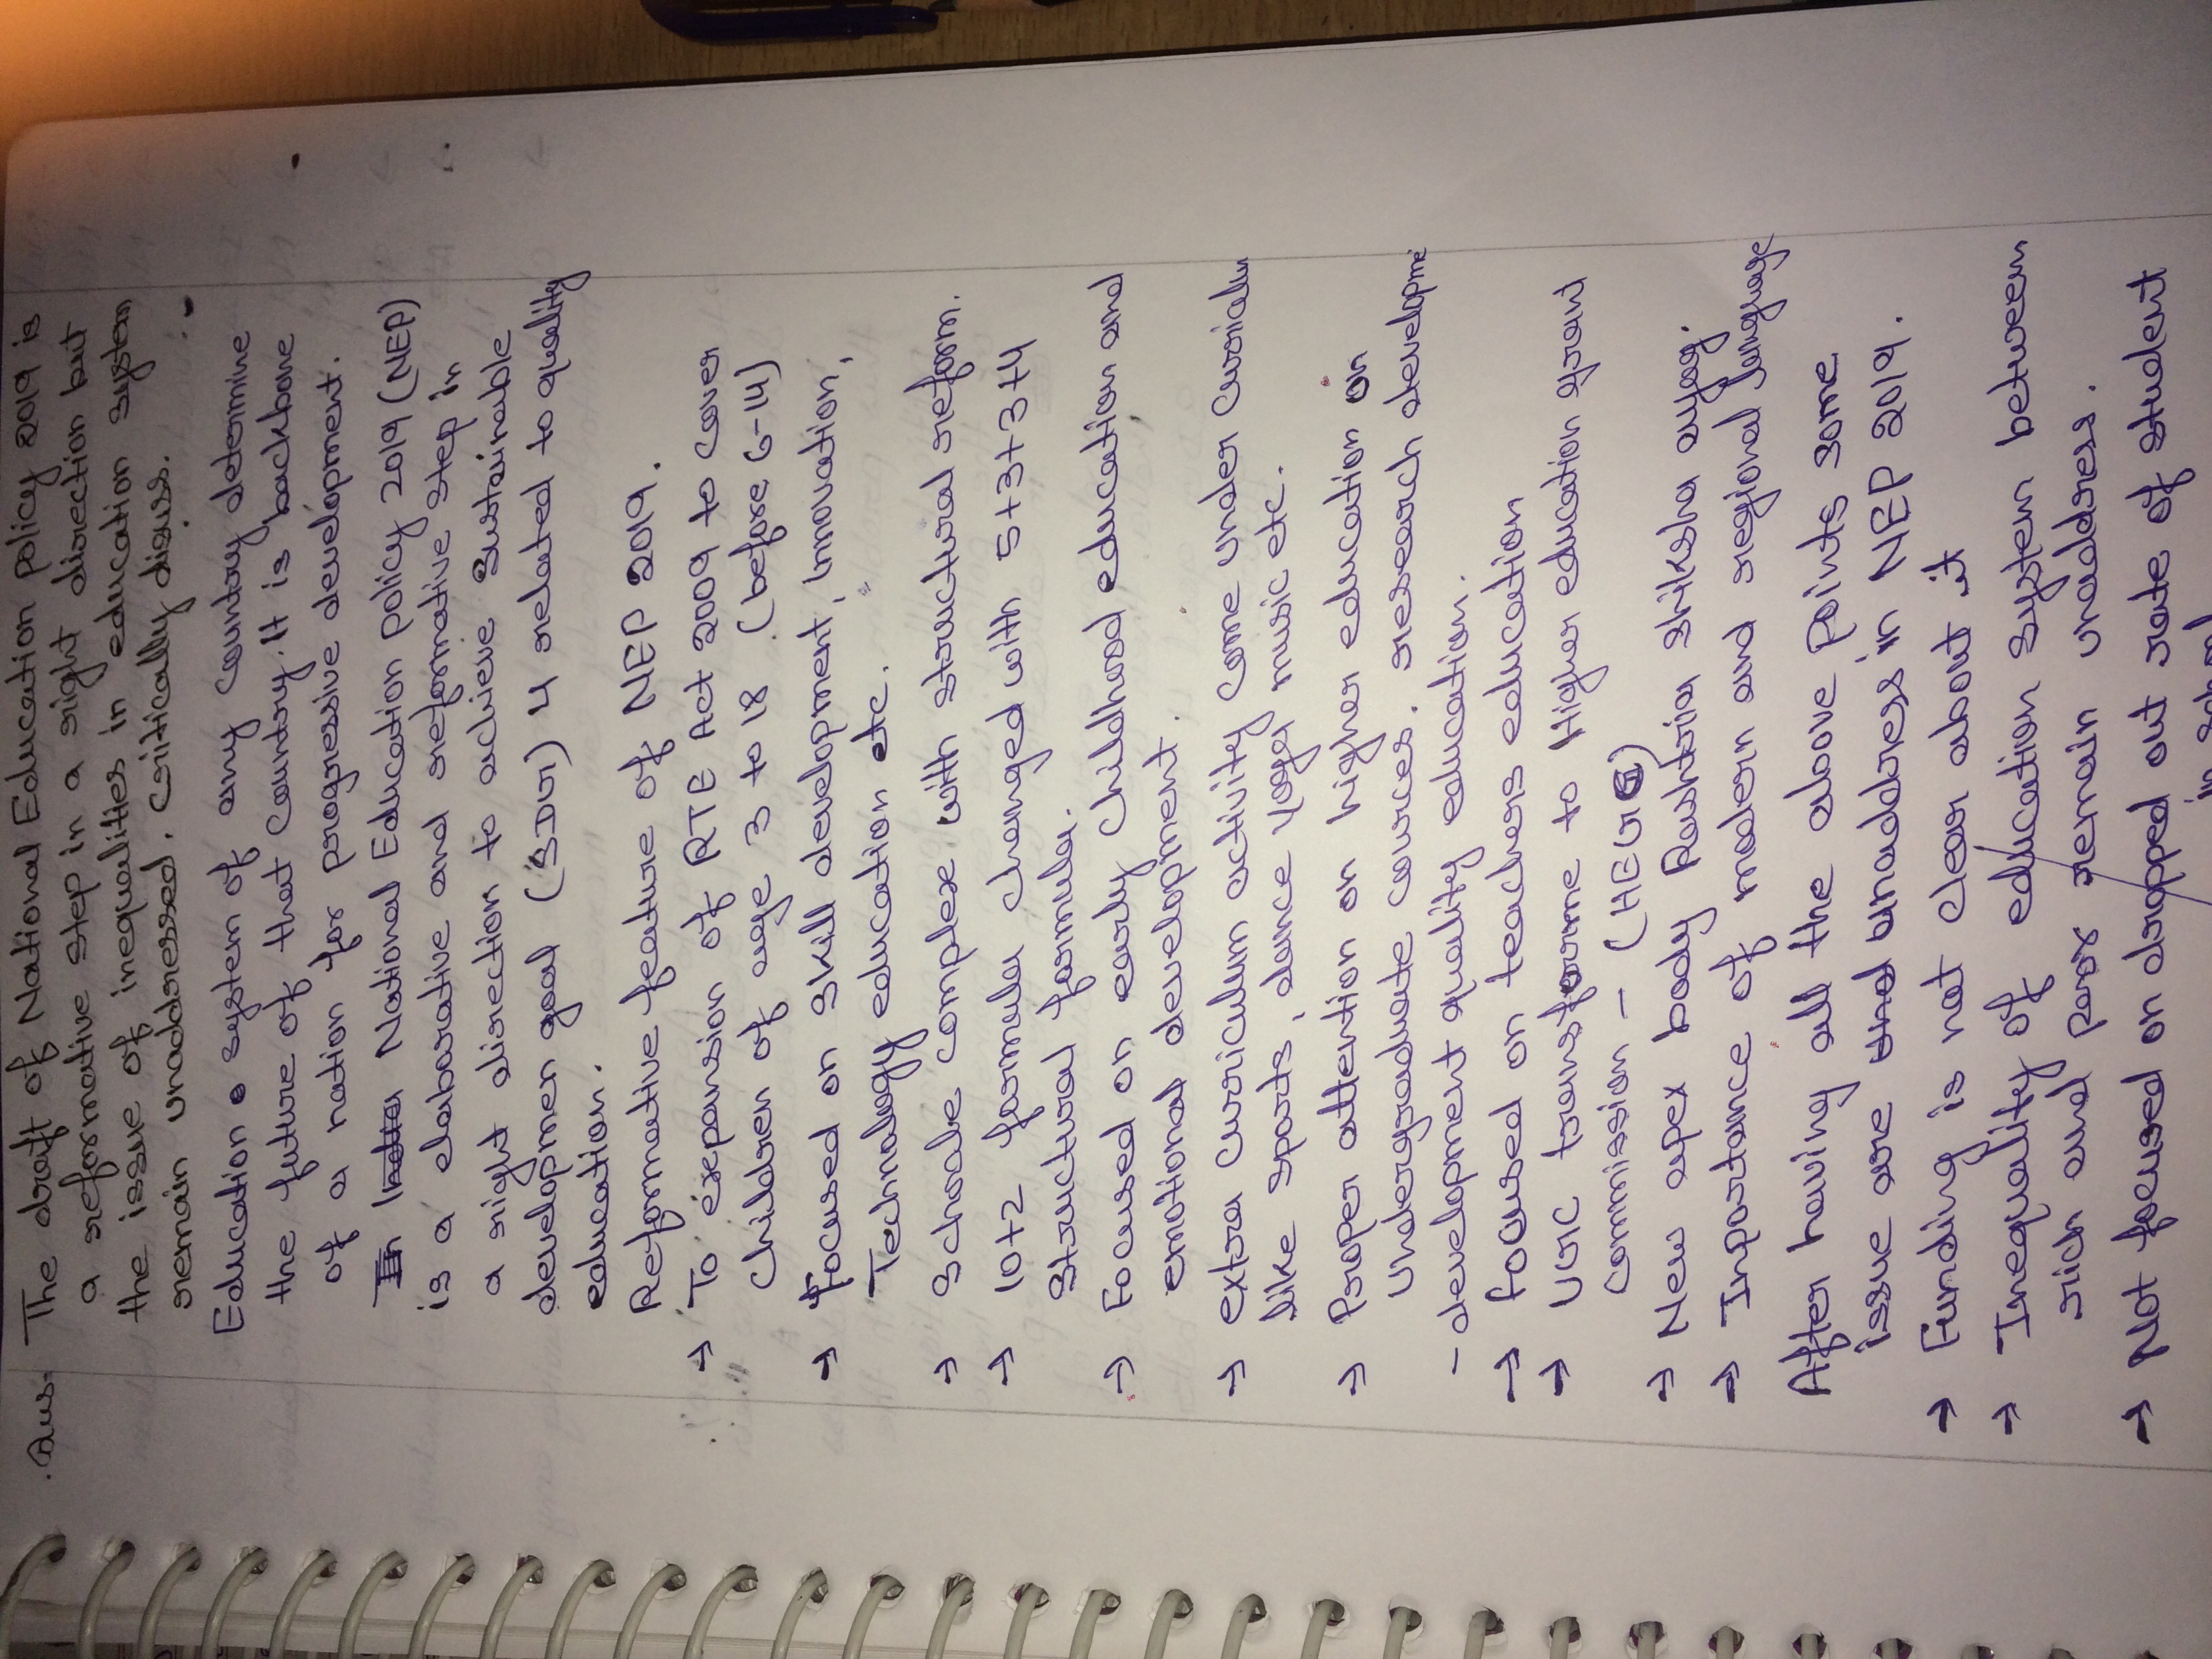 .Ques. The draft of National Education policy 2019 is
a reformative step in a right direction but
the issue of inequalities in education system
remain unaddressed. Critically disuss.
Education system of any country determine
the future of that country. It is backbone
of a nation for progressive development.
In National Education policy 2019 (NEP)
is a elaborative and reformative step in
a right direction to achieve Sustainable
developmen goal (SDG) 4 related to quality
education.
Reformative feature of NEP 2019.
→ To expansion of RTE Act 2009 to cover
Children of age 3 to 18 (before 6-14)
→ focused on skill development, innovation,
Technology education etc.
→ Schoole complex with structural reform.
→ 10+2 formula changed with 5+3+3+4
Structural formula.
→ Focused on early childhood education and
emotional development.
→ extra curriculum activity come under curriculum
like sports, dance yoga music etc.
→ Proper attention on higher education on
Undergraduate cources, research developme
- development quality education.
→ focused on teachers education
→ UGC transforme to Higher education grant
commission - (HEGC)
→ New apex body Rashtria shiksha ayog.
→ Importance of modern and regional language
After having all the above points some
issue are and unaddress in NEP 2019.
→ Funding is not clear about it
→ Inequality of education system between
rich and poor remain unaddress.
→ Not focused on dropped out rate of student
in school